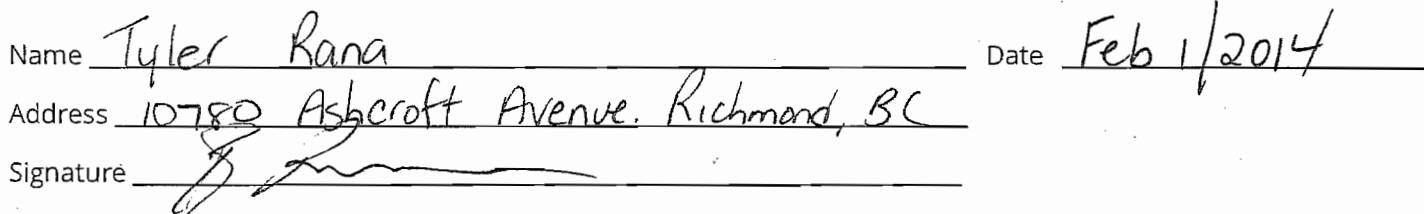 Name Tyler Rana Date Feb 1/2014
Address 10780 Ashcroft Avenue. Richmond, BC
Signature